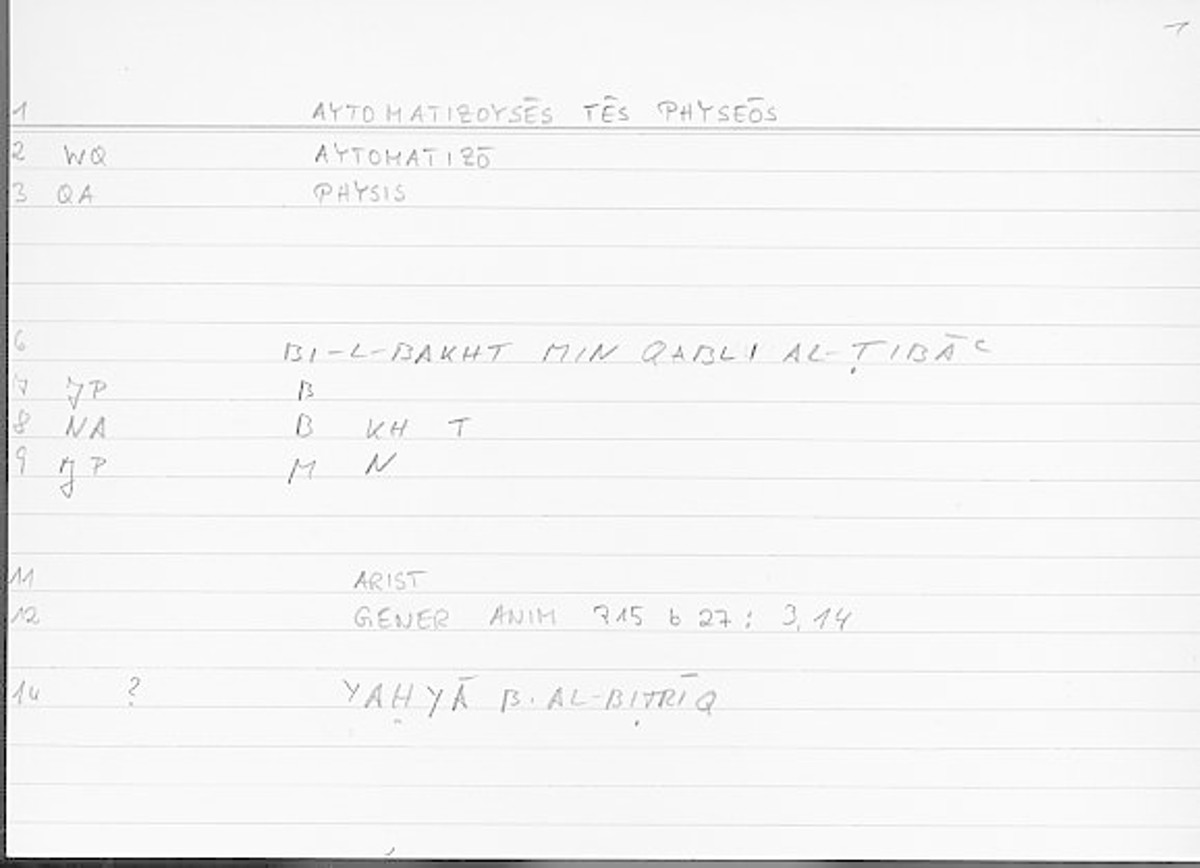 1
1 AYTOMATIZOYSĒS TĒS PHYSEŌS
2 WQ AYTOMATIZŌ
3 QA PHYSIS
6 BI-L-BAKHT MIN QABLI AL-ṬIBĀʿ
7 JP B
8 NA B KH T
9 JP M N
11 ARIST
12 GENER ANIM 715 b 27 : 3,14
14 ? YAḤYĀ B. AL-BIṬRĪQ